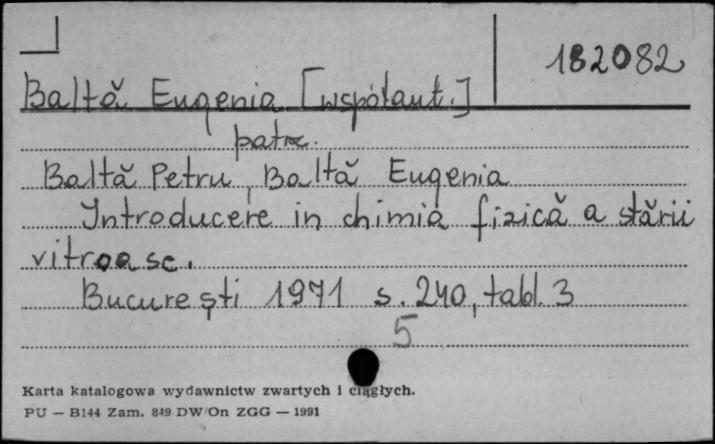 182082
Baltă Eugenia [współaut.]
patrz.
Baltă Petru, Baltă Eugenia
Introducere in chimia fizică a stării
vitroase.
Bucureşti 1971 s. 240, tabl. 3
5
Karta katalogowa wydawnictw zwartych i ciągłych.
PU — B144 Zam. 849 DW/On ZGG — 1991